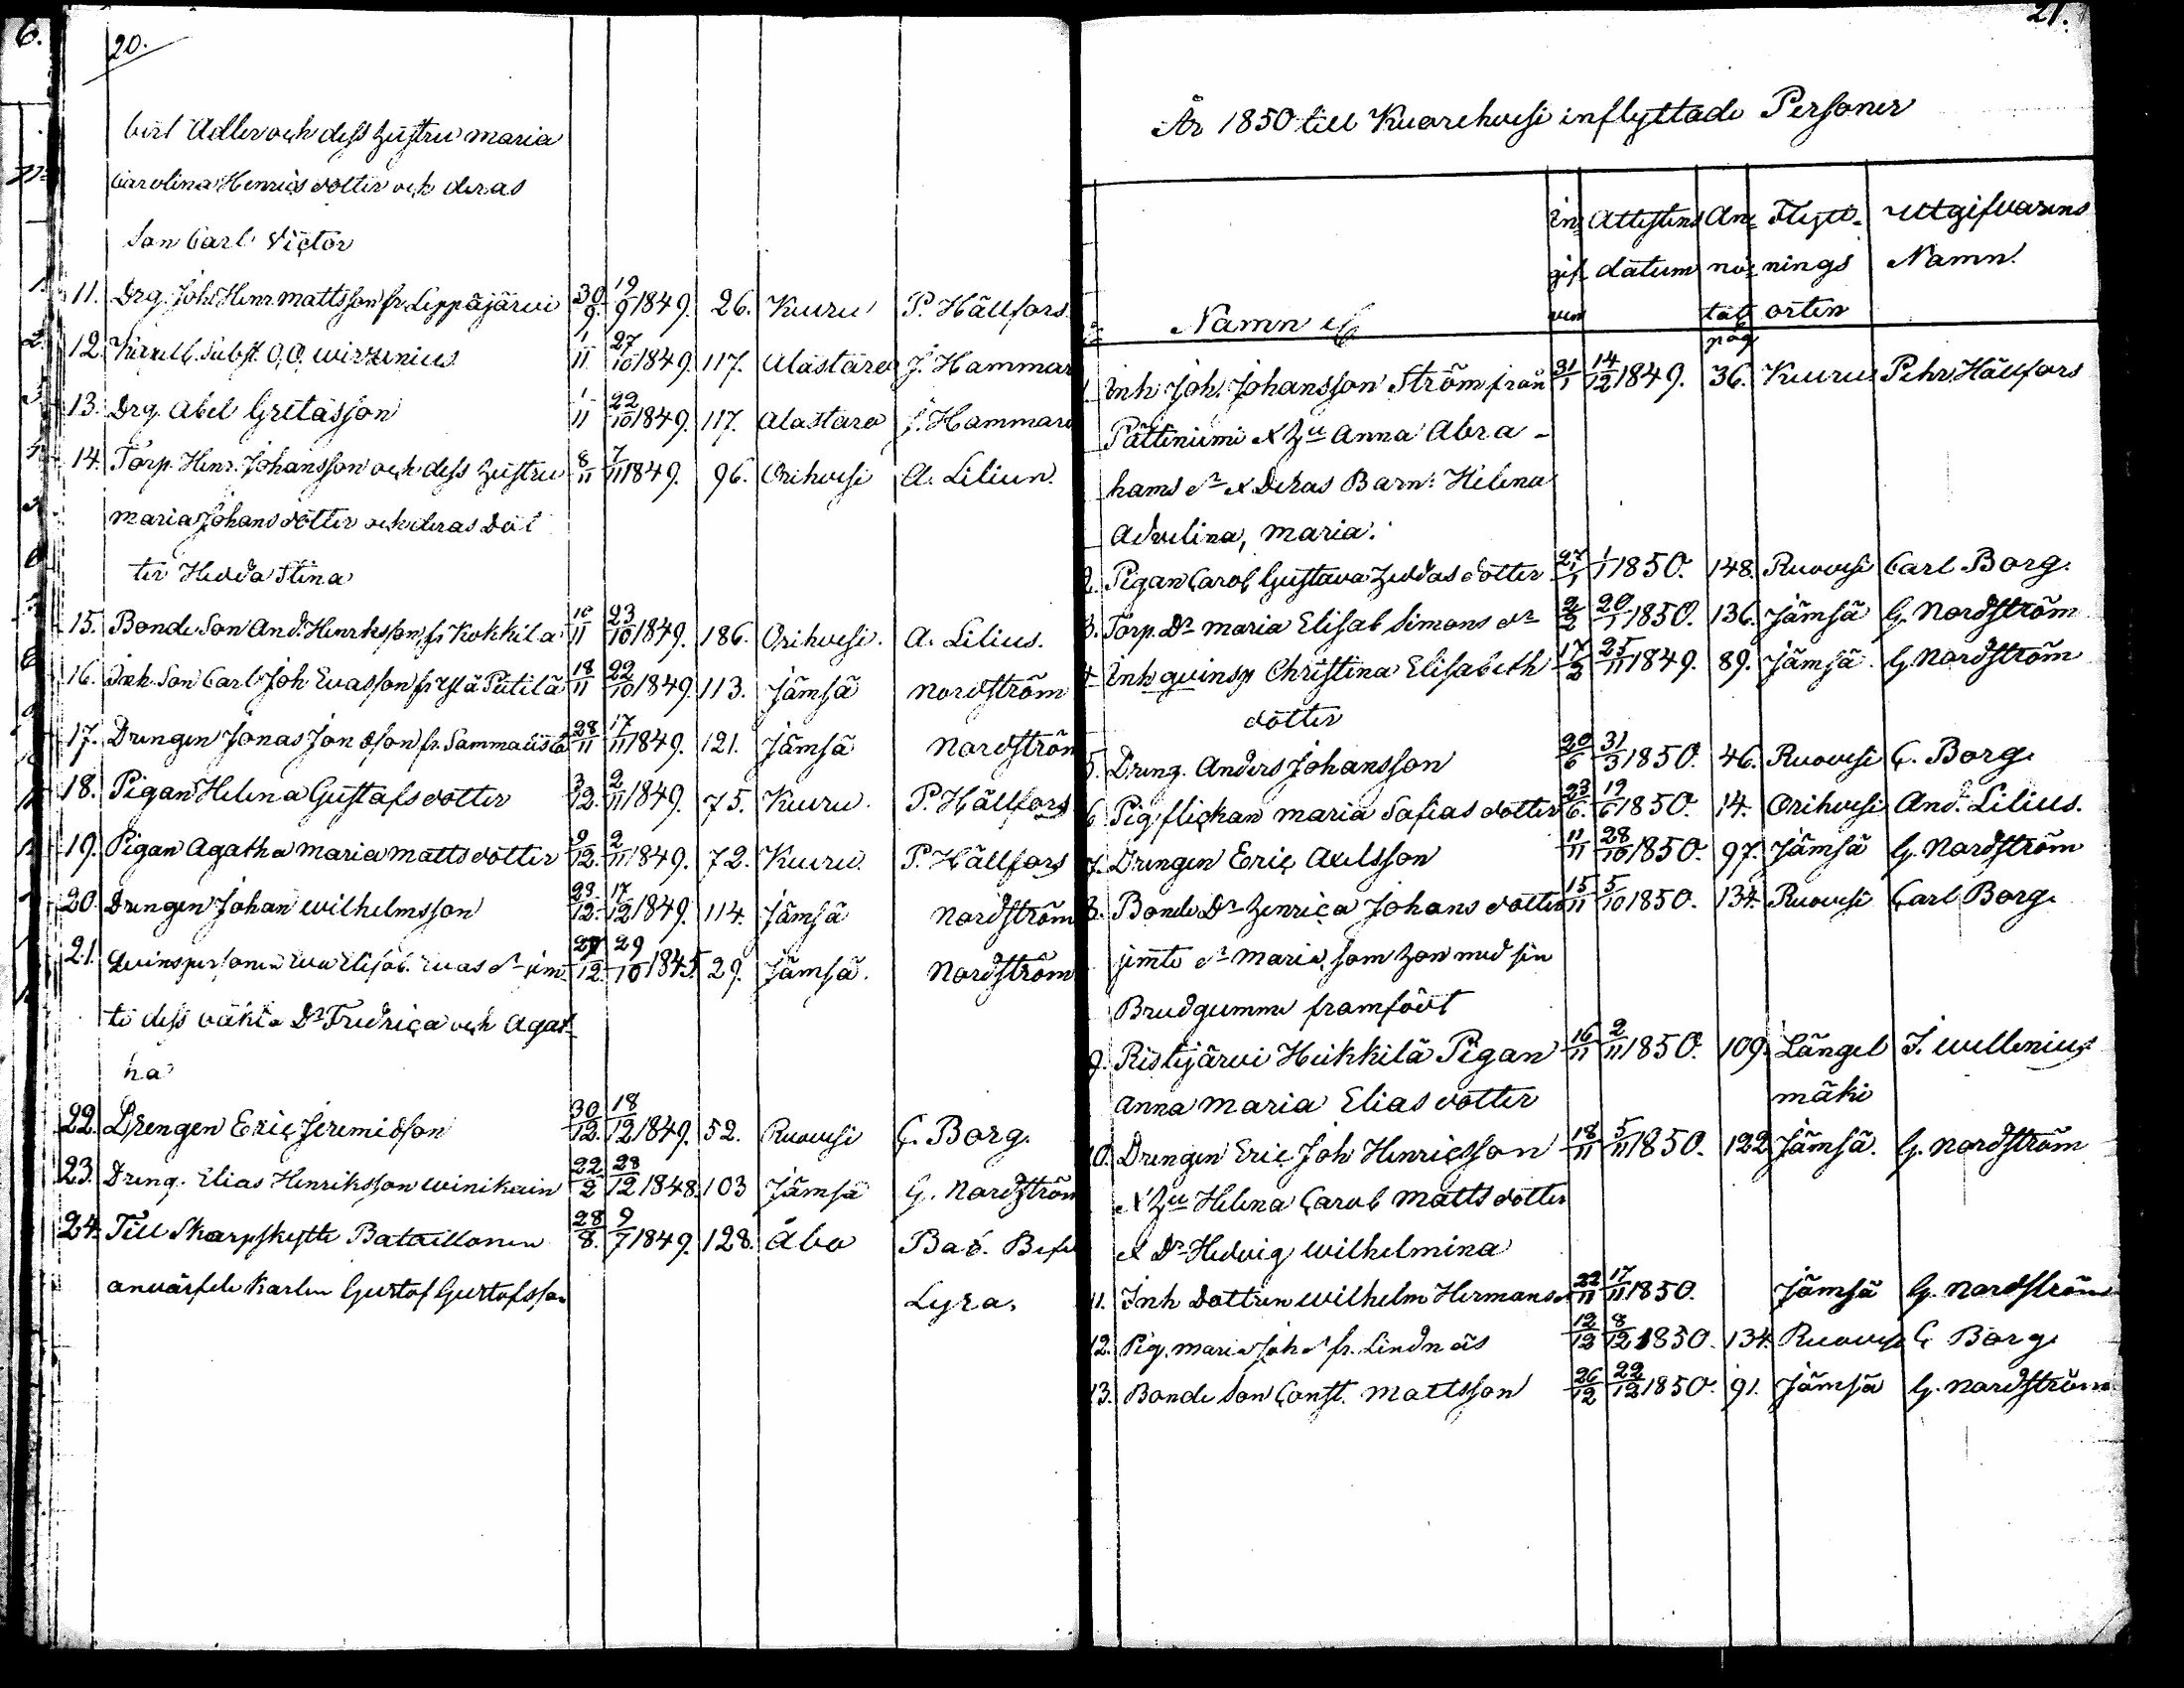 20.
Carl Adler och dess Hustru Maria
Carolina Henrics dotter och deras
Son Carl Victor
11. Drg. Joh. Henr. Mattsson fr. Leppäjärvi 30/9. 19/9 1849. 26. Kuru P. Hällfors
12. Subst. O. O. Wirzenius 1/11 27/10 1849. 117. Alastaro J. Hammar
13. Drg. Abel Gretasson 1/11 22/10 1849. 117. Alastaro J. Hammar
14. Torp. Henr. Johansson och dess Hustru 8/11 7/11 1849. 96. Orihvesi A. Lilius.
Maria Johans dotter och deras Dot
ter Hedda Stina
15. Bonde Son And. Henrksson fr Kokkila 10/11 23/10 1849. 186. Orihvesi. A. Lilius.
16. Son Carl Joh Evasson fr Ylä Putila 18/11 22/10 1849. 113. Jämsä Nordström
17. Drengen Jonas Jon dson fr. Sammalisto 28/11 17/11 1849. 121. Jämsä Nordström
18. Pigan Helena Gustafs dotter 3/12. 2/11 1849. 75. Kuru. P. Hällfors
19. Pigan Agatha Maria Matts dotter 9/12. 2/11 1849. 72. Kuru. P. Hällfors
20. Drengen Johan Wilhelmsson 23/12. 17/12 1849. 114. Jämsä Nordström
21. Qvinspersonen Eva Elisab. Evas dr jem 27/12. 29/10 1845. 29. Jämsä. Nordström
te dess oäkta Dr Fredrica och Agat-
ha
22. Drengen Eric Jeremidson 30/12. 18/12 1849. 52. Ruovesi C. Borg.
23. Dreng. Elias Henriksson Winikain 22/2 28/12 1848. 103 Jämsä G. Nordström
24. Till Skarpskytte Bataillonen 28/8. 9/7 1849. 128. Åbo Bat. Bef
anvärfde Karlen Gustaf Gustafsson Lyra.
21.
År 1850 till Kuorehvesi inflyttade Personer
Namn &c In- gif- ven Attestens datum An- nö- tab pag Flytt- nings orten Utgifvarens Namn.
1 Inh Joh. Johansson Ström från 31/1 14/12 1849. 36. Kuru Pehr Hällfors
Pättiniemi & Hu Anna Abra-
hams dr & Deras Barn: Helena
Advelina, Maria.
2. Pigan Carol Gustava Heddas dotter 27/1 1/1 1850. 148. Ruovesi Carl Borg.
3. Torp. Dr Maria Elisab Simons dr 2/2 20/1 1850. 136. Jämsä G. Nordström
4 Inh qvinsp Christina Elisabeth 17/2 25/11 1849. 89. Jämsä G. Nordström
dotter
5. Dreng. Anders Johansson 20/6 31/3 1850. 46. Ruovesi C. Borg.
6 Pigflickan Maria Sofias dotter 23/6. 19/6 1850. 14. Orihvesi And. Lilius.
7. Drengen Eric Axelsson 11/11 28/10 1850. 97. Jämsä G. Nordström
8. Bonde Dr Henrica Johans dotter 15/11 5/10 1850. 134. Ruovesi Carl Borg.
jemte dr Maria, som hon med sin
Brudgumme framfödt
9. Ristijärvi Heikkilä Pigan 16/11 2/11 1850. 109. Längel T. Wellenius
Anna Maria Elias dotter mäki
10. Drengen Eric Joh Henricsson 18/11 5/11 1850. 122 Jämsä. G. Nordström
& Hu Helena Carol Matts dotter
& Dr Hedvig Wilhelmina
11. Inh Dottren Wilhelm Hermans dr 22/11 17/11 1850. Jämsä G. Nordström
12. Pig. Maria Joh dr fr. Lindnäs 12/12 8/12 1850. 134. Ruovesi C Borg.
13. Bonde Son Const. Mattsson 26/12 22/12 1850. 91. Jämsä G. Nordström